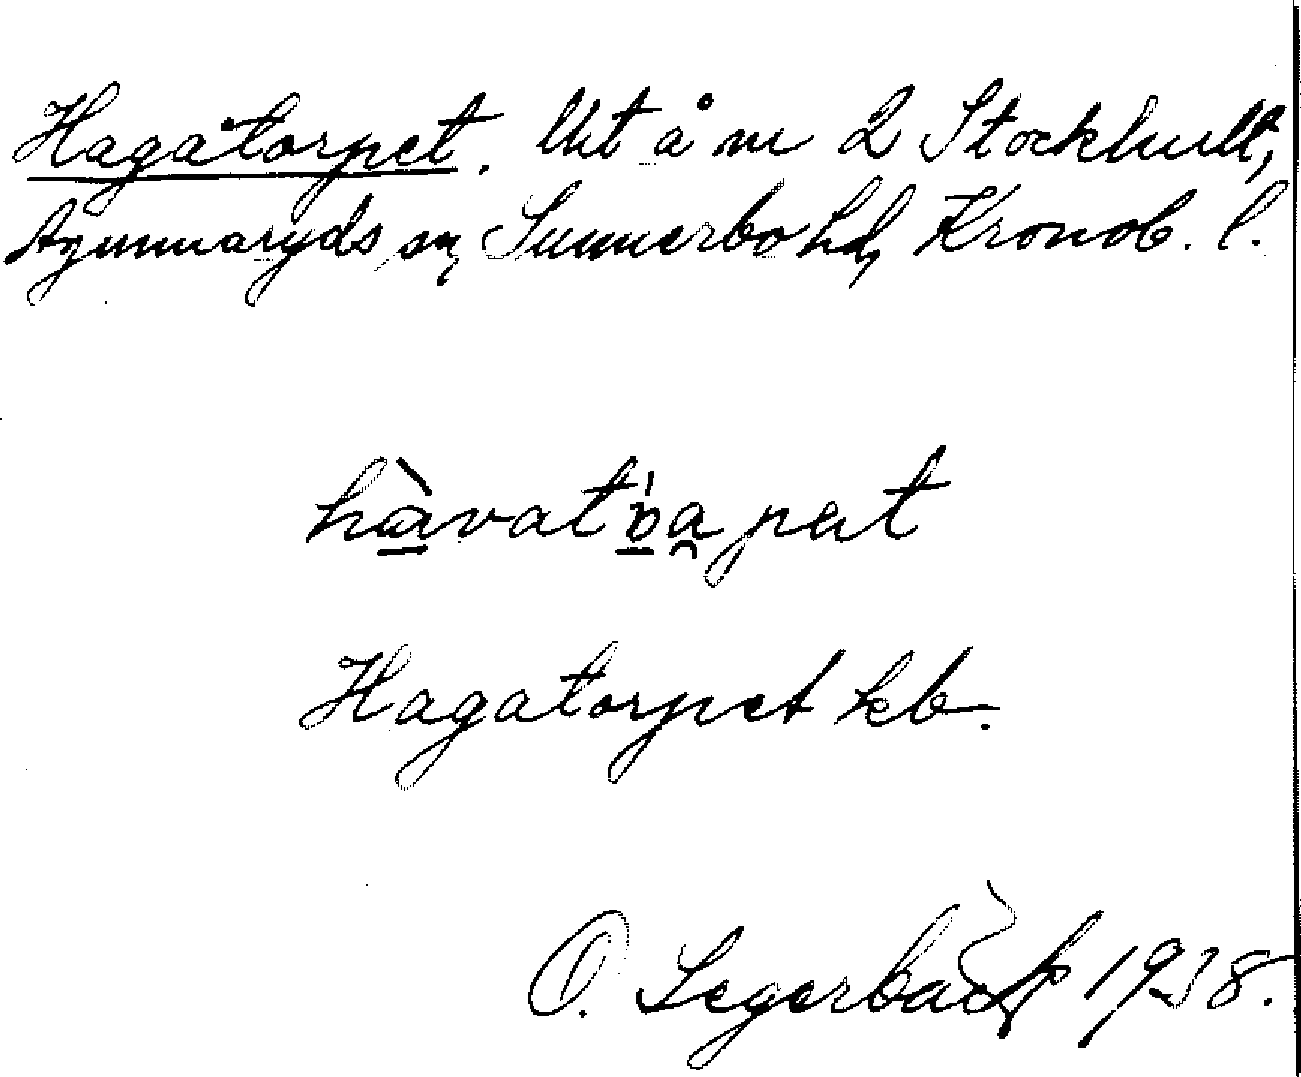 Hagatorpet. Utt å nr 2 Stockhult,
Agunnaryds sn, Sunnerbo hd, Kronob. l.
hàvatòapet
Hagatorpet kb.
O. Segerbäck 1938.